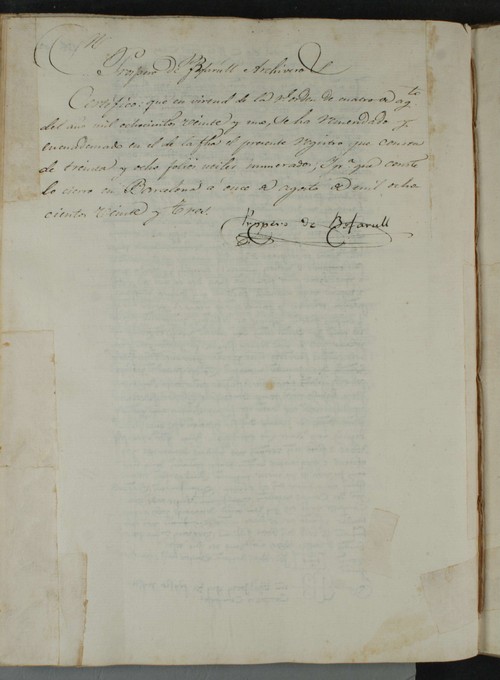 Prospero de Bofarull Archivero
Certifico: que en virtud de la Rl orden de nueve de agto
del año mil ochocientos veinte y uno, se ha remendado y
encuadernado en el de la fha el presente Registro que consta
de treinta y ocho folios utiles numerados, Y pa que conste
lo cierro en Barcelona a once de agosto de mil ocho
cientos veinte y tres.
Prospero de Bofarull